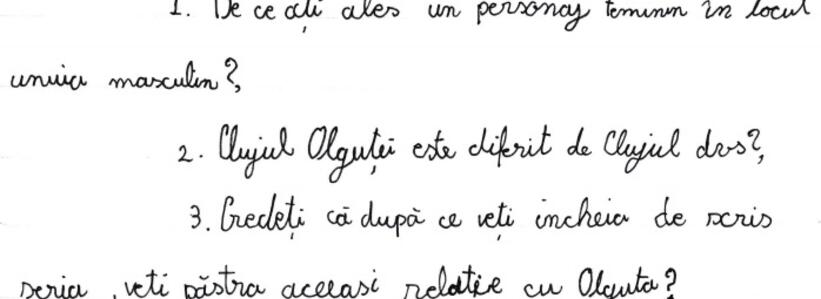 1. De ce ați ales un personaj feminin în locul
unuia masculin?,
2. Clujul Olguței este diferit de Clujul dvs?,
3. Credeți că după ce veți încheia de scris
seria, veți păstra aceeasi relație cu Olguta?